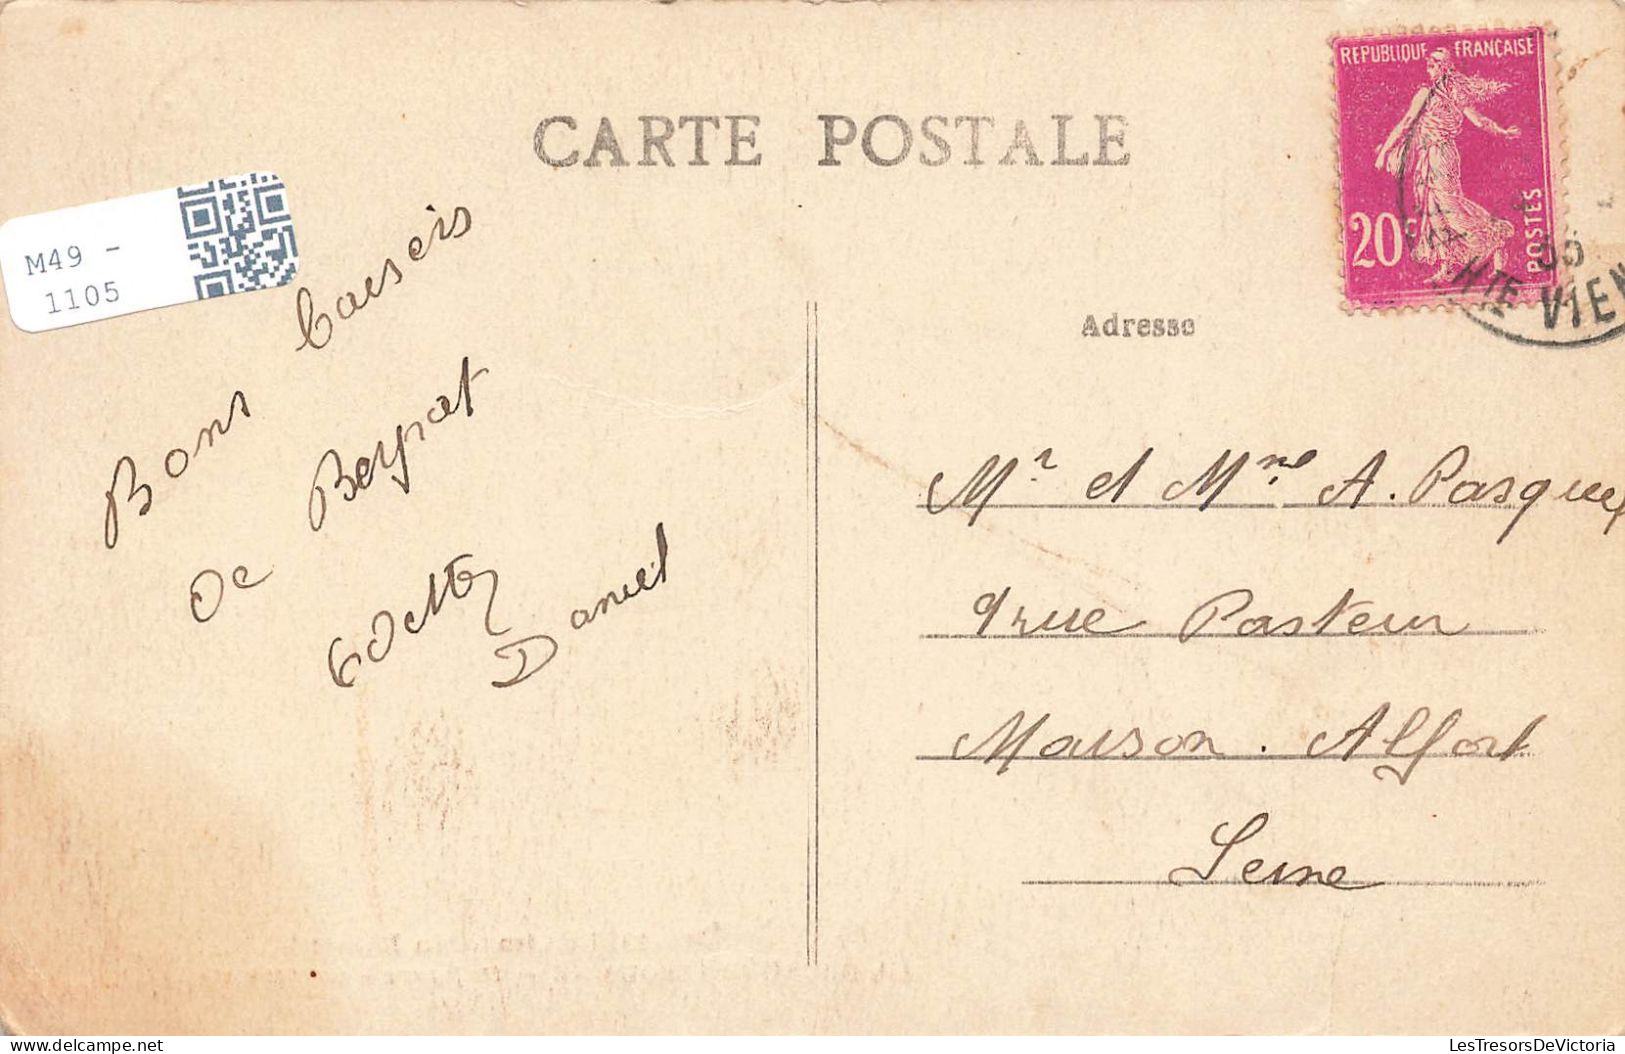 CARTE POSTALE
REPUBLIQUE FRANÇAISE
20c
POSTES
HTE VIEN
M49 -
1105
Bons baisers
de Beynat
Odette
Daniel
Adresse
Mr et Mme A. Pasquet
9 rue Pasteur
Maison. Alfort
Seine
delcampe.net
LesTresorsDeVictoria